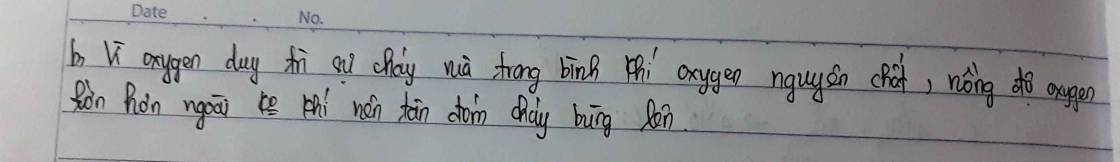 Date . . No.
b, Vì oxygen duy trì sự cháy mà trong bình khí oxygen nguyên chất, nồng độ oxygen
lớn hơn ngoài khí nên tàn đóm cháy bùng lên.